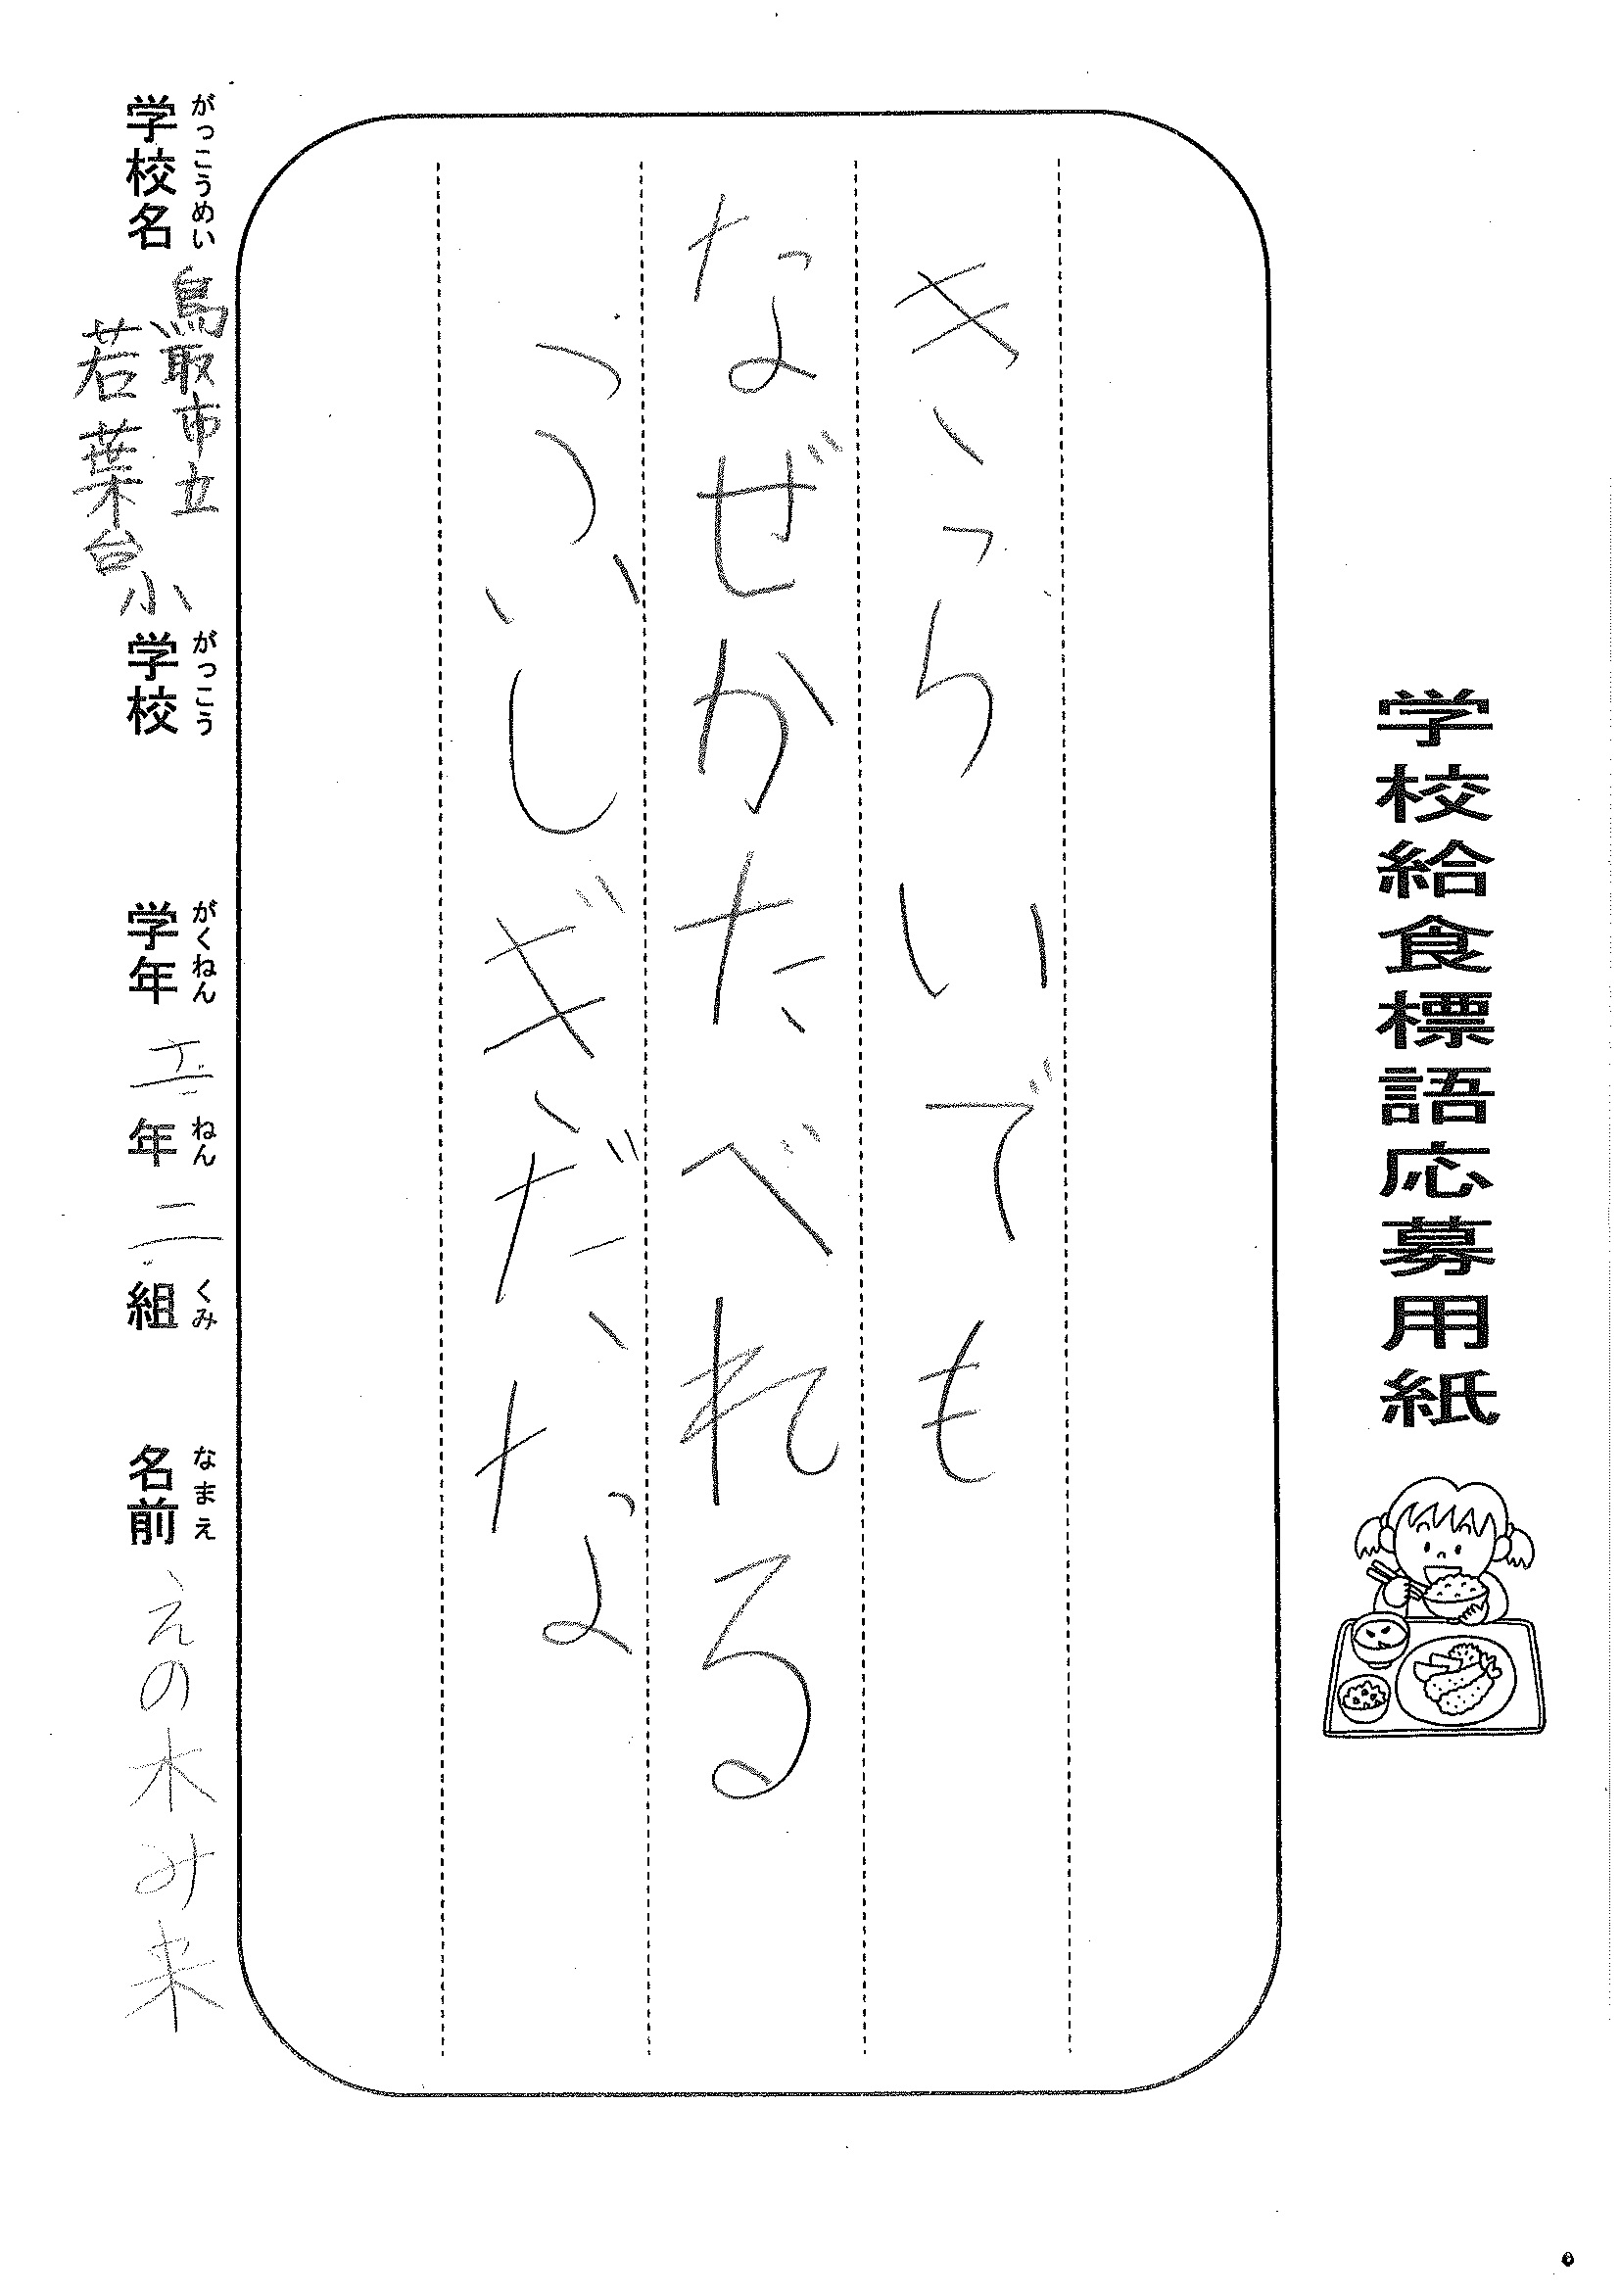 学校給食標語応募用紙
きらいでも
なぜかたべれる
ふしぎだな
がっこうめい がっこう がくねん ねん くみ なまえ
学校名 鳥取市立
若葉台小 学校 学年 年 二 組 名前 えの木み来